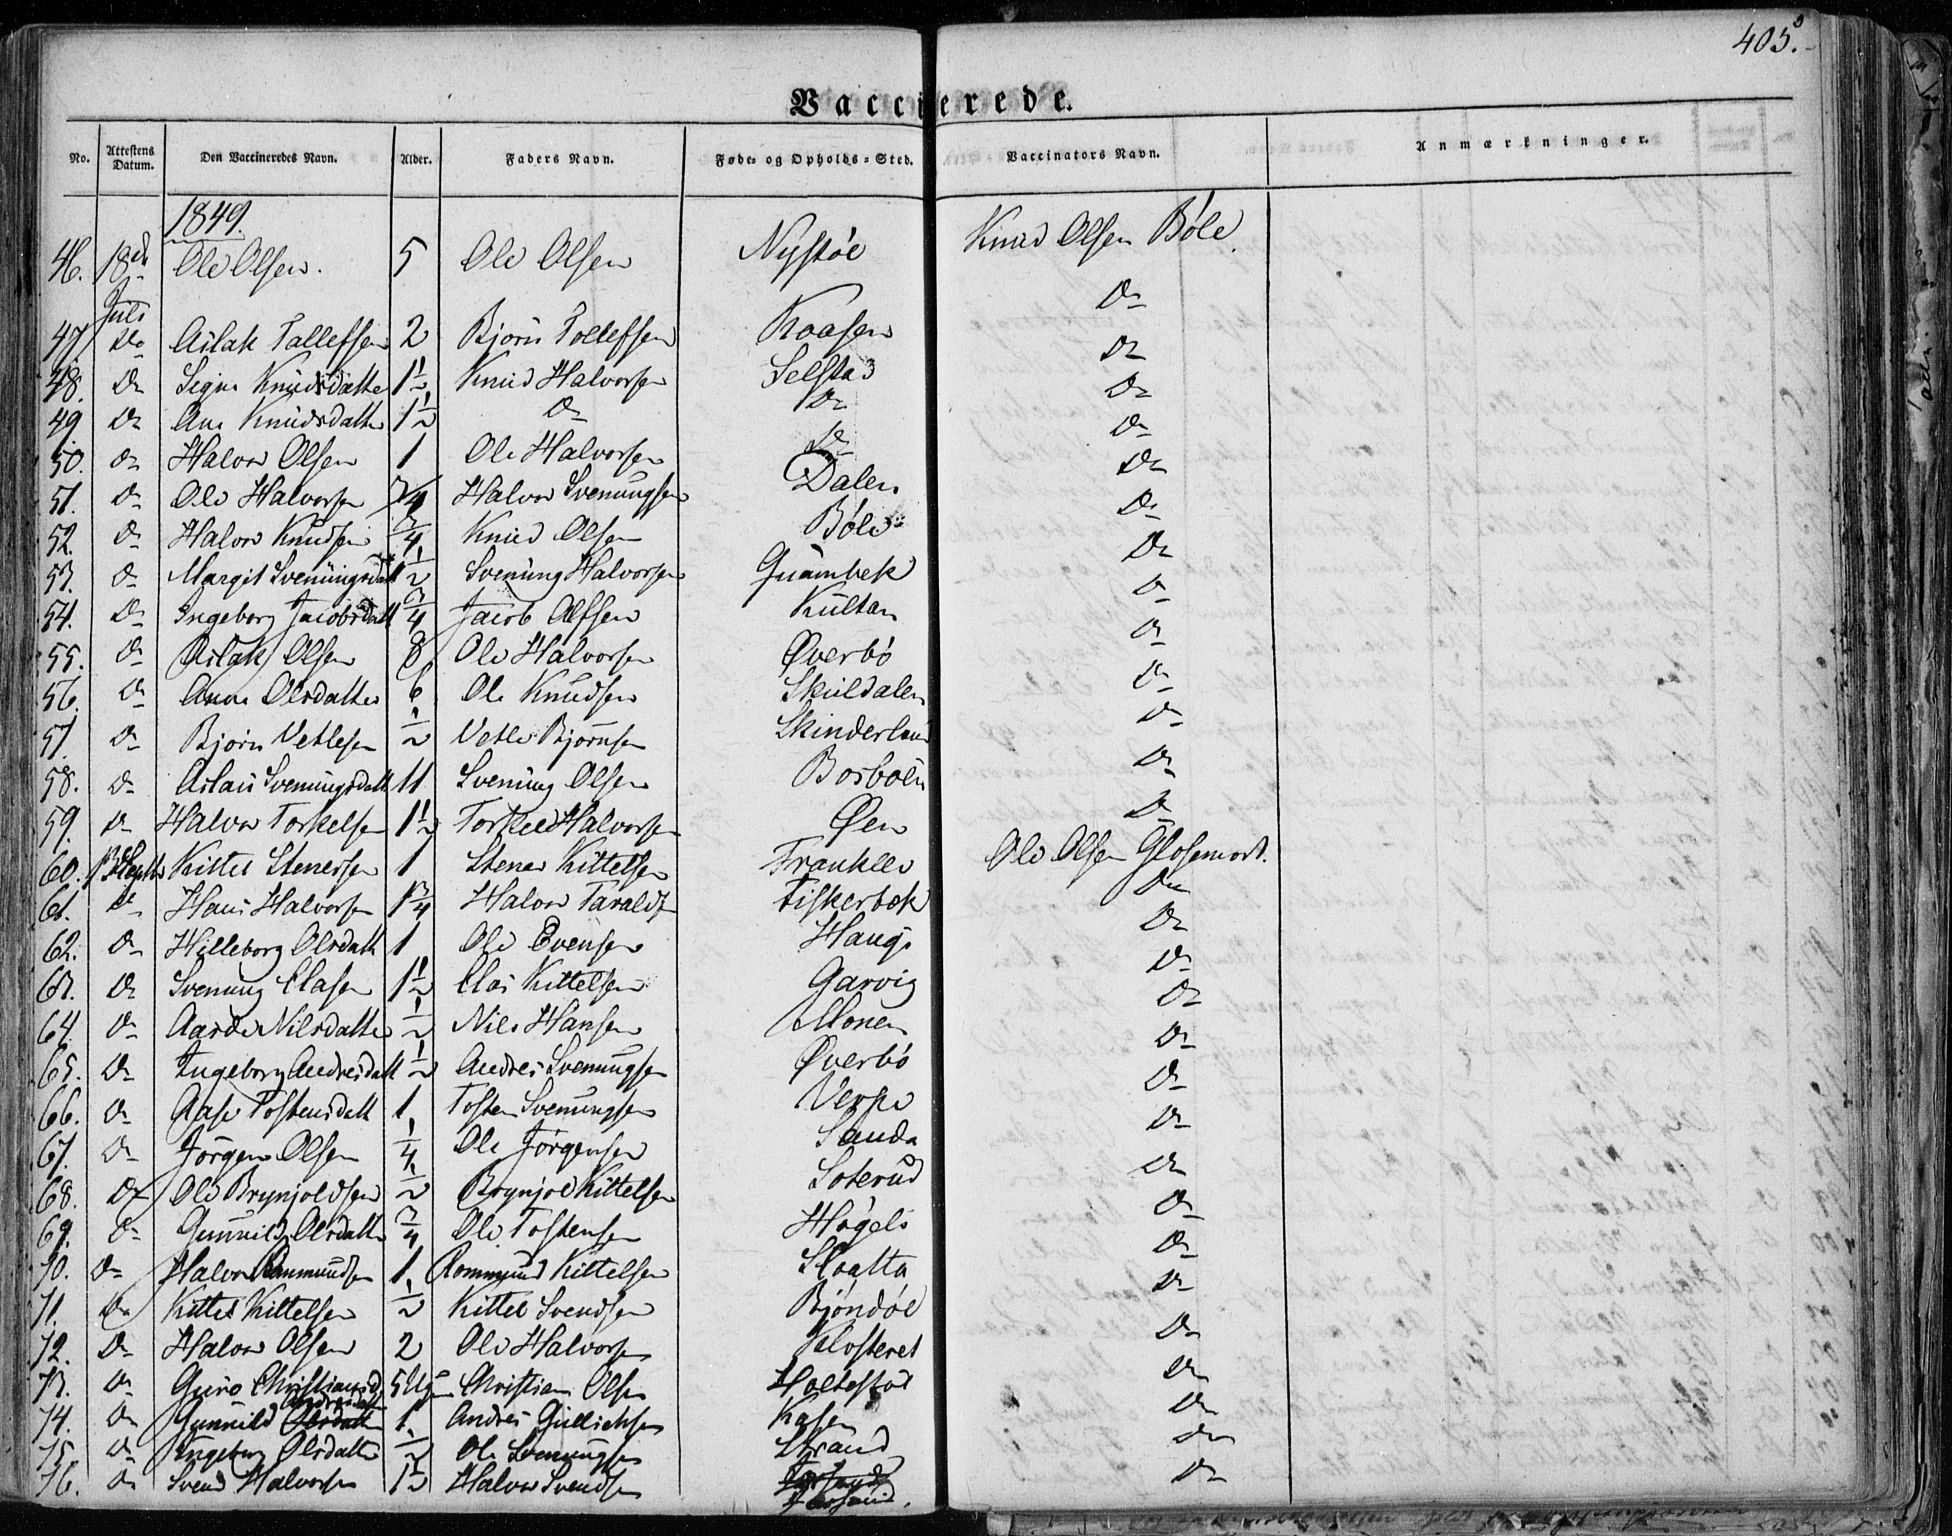 405.
Vaccinerede.
No. Attestens Datum. Den Vaccineredes Navn. Alder. Faders Navn. Føde- og Opholds-Sted. Vaccinators Navn. Anmærkninger.
1849.
46. 18de Juli Ole Olsen. 5 Ole Olsen Nystøe Knud Olsen Bøle
47 Do Aslak Tallefsen 2 Bjørn Tollefsen Kaasen Do
48. Do Signe Knudsdatte 1½ Knud Halvorsen Selstad Do
49 Do Ane Knudsdatte 1½ Do Do Do
50. Do Halvor Olsen 1 Ole Halvorsen Do Do
51. Do Ole Halvorsen 3/4 Halvor Svenungsen Dalen Do
52. Do Halvor Knudsen 3/4 Knud Olsen Bøle Do
53. Do Margit Svenungsdatt ½ Svenung Halvorsen Quambek Do
54. Do Ingeborg Jacobsdatt 3/4 Jacob Olfsen Kultan Do
55. Do Aslak Olsen 8 Ole Halvorsen Øverbø Do
56. Do Anne Olsdatter 6 Ole Knudsen Skuldalen Do
57. Do Bjørn Vetlesen ½ Vetle Bjørnsen Skinderland Do
58. Do Aslau Svenungsdatt 11 Svenung Olsen Bosbøen Do
59. Do Halvor Torkelsen 1½ Torkel Halvorsen Øen Do
60. Septbr Kittel Stenersen 1 Stener Kittelsen Franklev Ole Olsen Glosemodt.
61. Do Hans Halvorsen 1¾ Halvor Taraldsen Fiskerbek Do
62. Do Hilleborg Olsdatt 1 Ole Evensen Hauge Do
63. Do Svenung Clasen 1½ Clas Kittelsen Garvig Do
64. Do Aarde Nilsdatte ½ Nils Hansen Monen Do
65. Do Ingeborg Andresdatt ½ Andres Svenungsen Øverbø Do
66. Do Aase Tostensdatt 1 Tosten Svenungsen Verpe Do
67. Do Jørgen Olsen ¼ Ole Jørgensen Sanda Do
68. Do Ole Brynjoldsen ½ Brynjol Kittelsen Soterud Do
69. Do Gunnild Olsdatte 3/4 Ole Tostensen Høgeli Do
70. Do Halvor Rommundsen 1 Rommund Kittelsen Slaatta Do
71. Do Kittel Kittelsen ½ Kittel Svendsen Bjøndøl Do
72. Do Halvor Olsen 2 Ole Halvorsen Klosteret Do
73. Do Guro Christiansd. 5 Uger Christian Olsen Holtestøl Do
74. Do Gunnild Olsdatt Andresdatt 1 Andres Gullichsen Kasen Do
75. Do Ingeborg Olsdatte ½ Ole Svenungsen Strand Do
76. Do Svend Halvorsen 1½ Halvor Svendsen Do